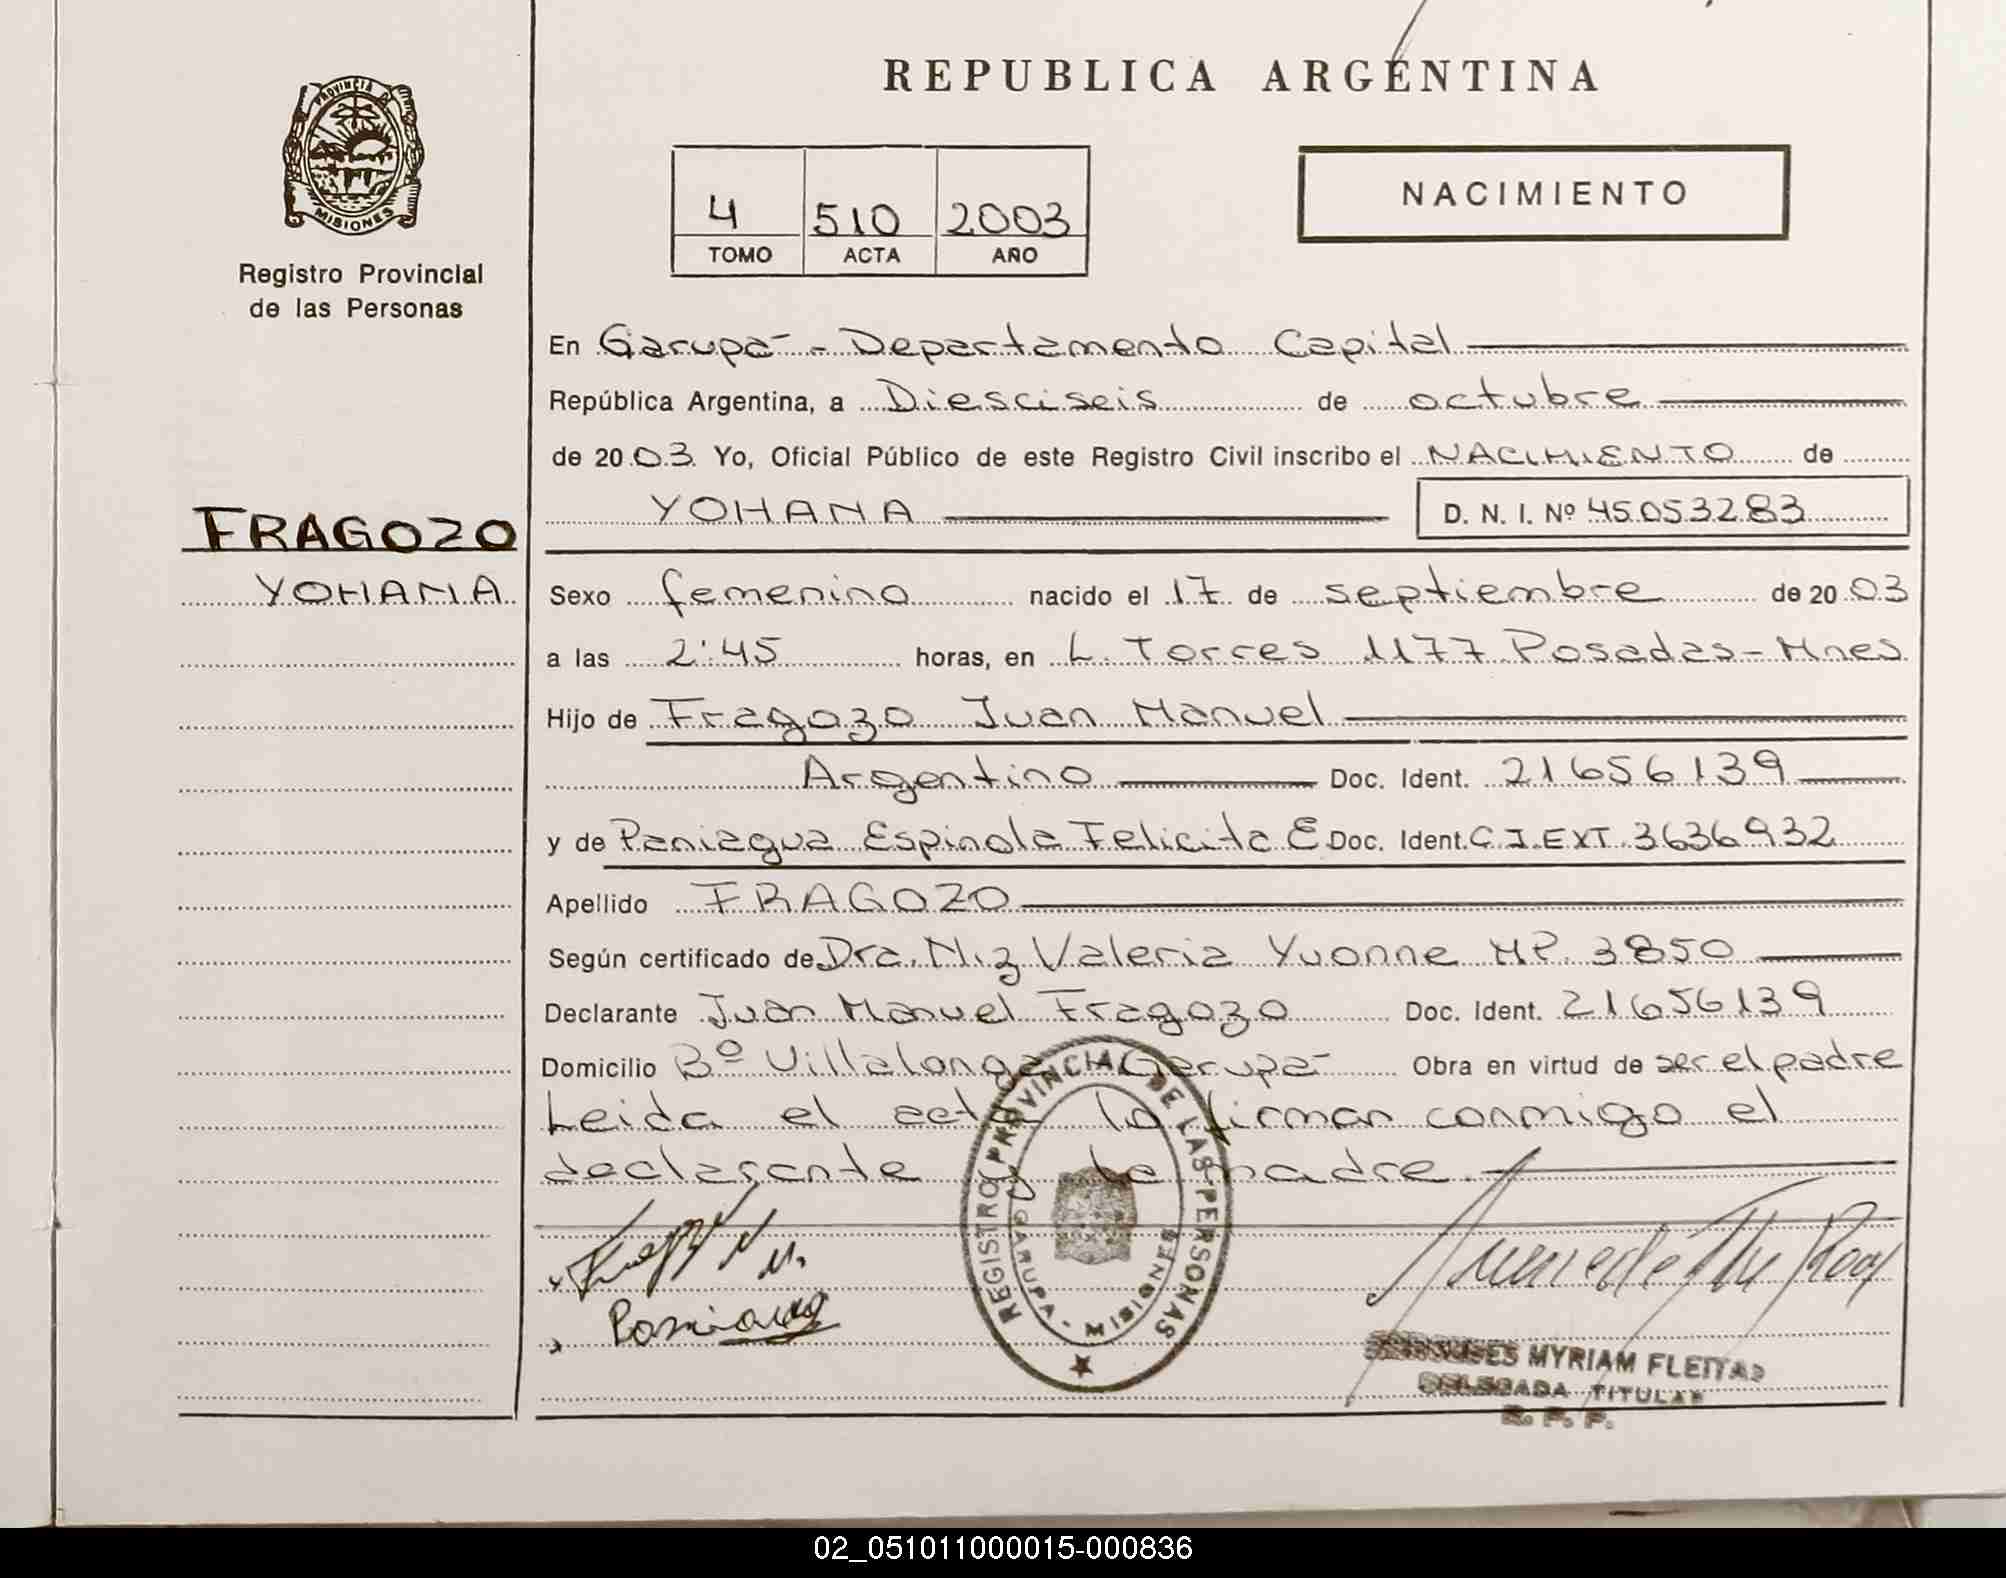 REPUBLICA ARGENTINA
PROVINCIA D
MISIONES
Registro Provincial
de las Personas
4 510 2003
TOMO ACTA AÑO
NACIMIENTO
En Garupá - Departamento Capital
República Argentina, a Diesciseis de octubre
de 2003 Yo, Oficial Público de este Registro Civil inscribo el NACIMIENTO de
FRAGOZO
YOHANA
YOHANA D. N. I. Nº 45053283
Sexo femenino nacido el 17 de septiembre de 2003
a las 2:45 horas, en L. Torres 1177 Posadas - Mnes
Hijo de Fragozo Juan Manuel
Argentino Doc. Ident. 21656139
y de Paniagua Espinola Felicita E Doc. Ident. C.I.EXT. 3636932
Apellido FRAGOZO
Según certificado de Dra. Niz Valeria Yvonne MP. 3850
Declarante Juan Manuel Fragozo Doc. Ident. 21656139
Domicilio Bº Villalonga Garupá Obra en virtud de ser el padre
Leida el acta la firman conmigo el
declarante y la madre.
REGISTRO PROVINCIAL DE LAS PERSONAS
GARUPA - MISIONES
MYRIAM FLEITAS
DELEGADA TITULAR
R. P. P.
02_051011000015-000836